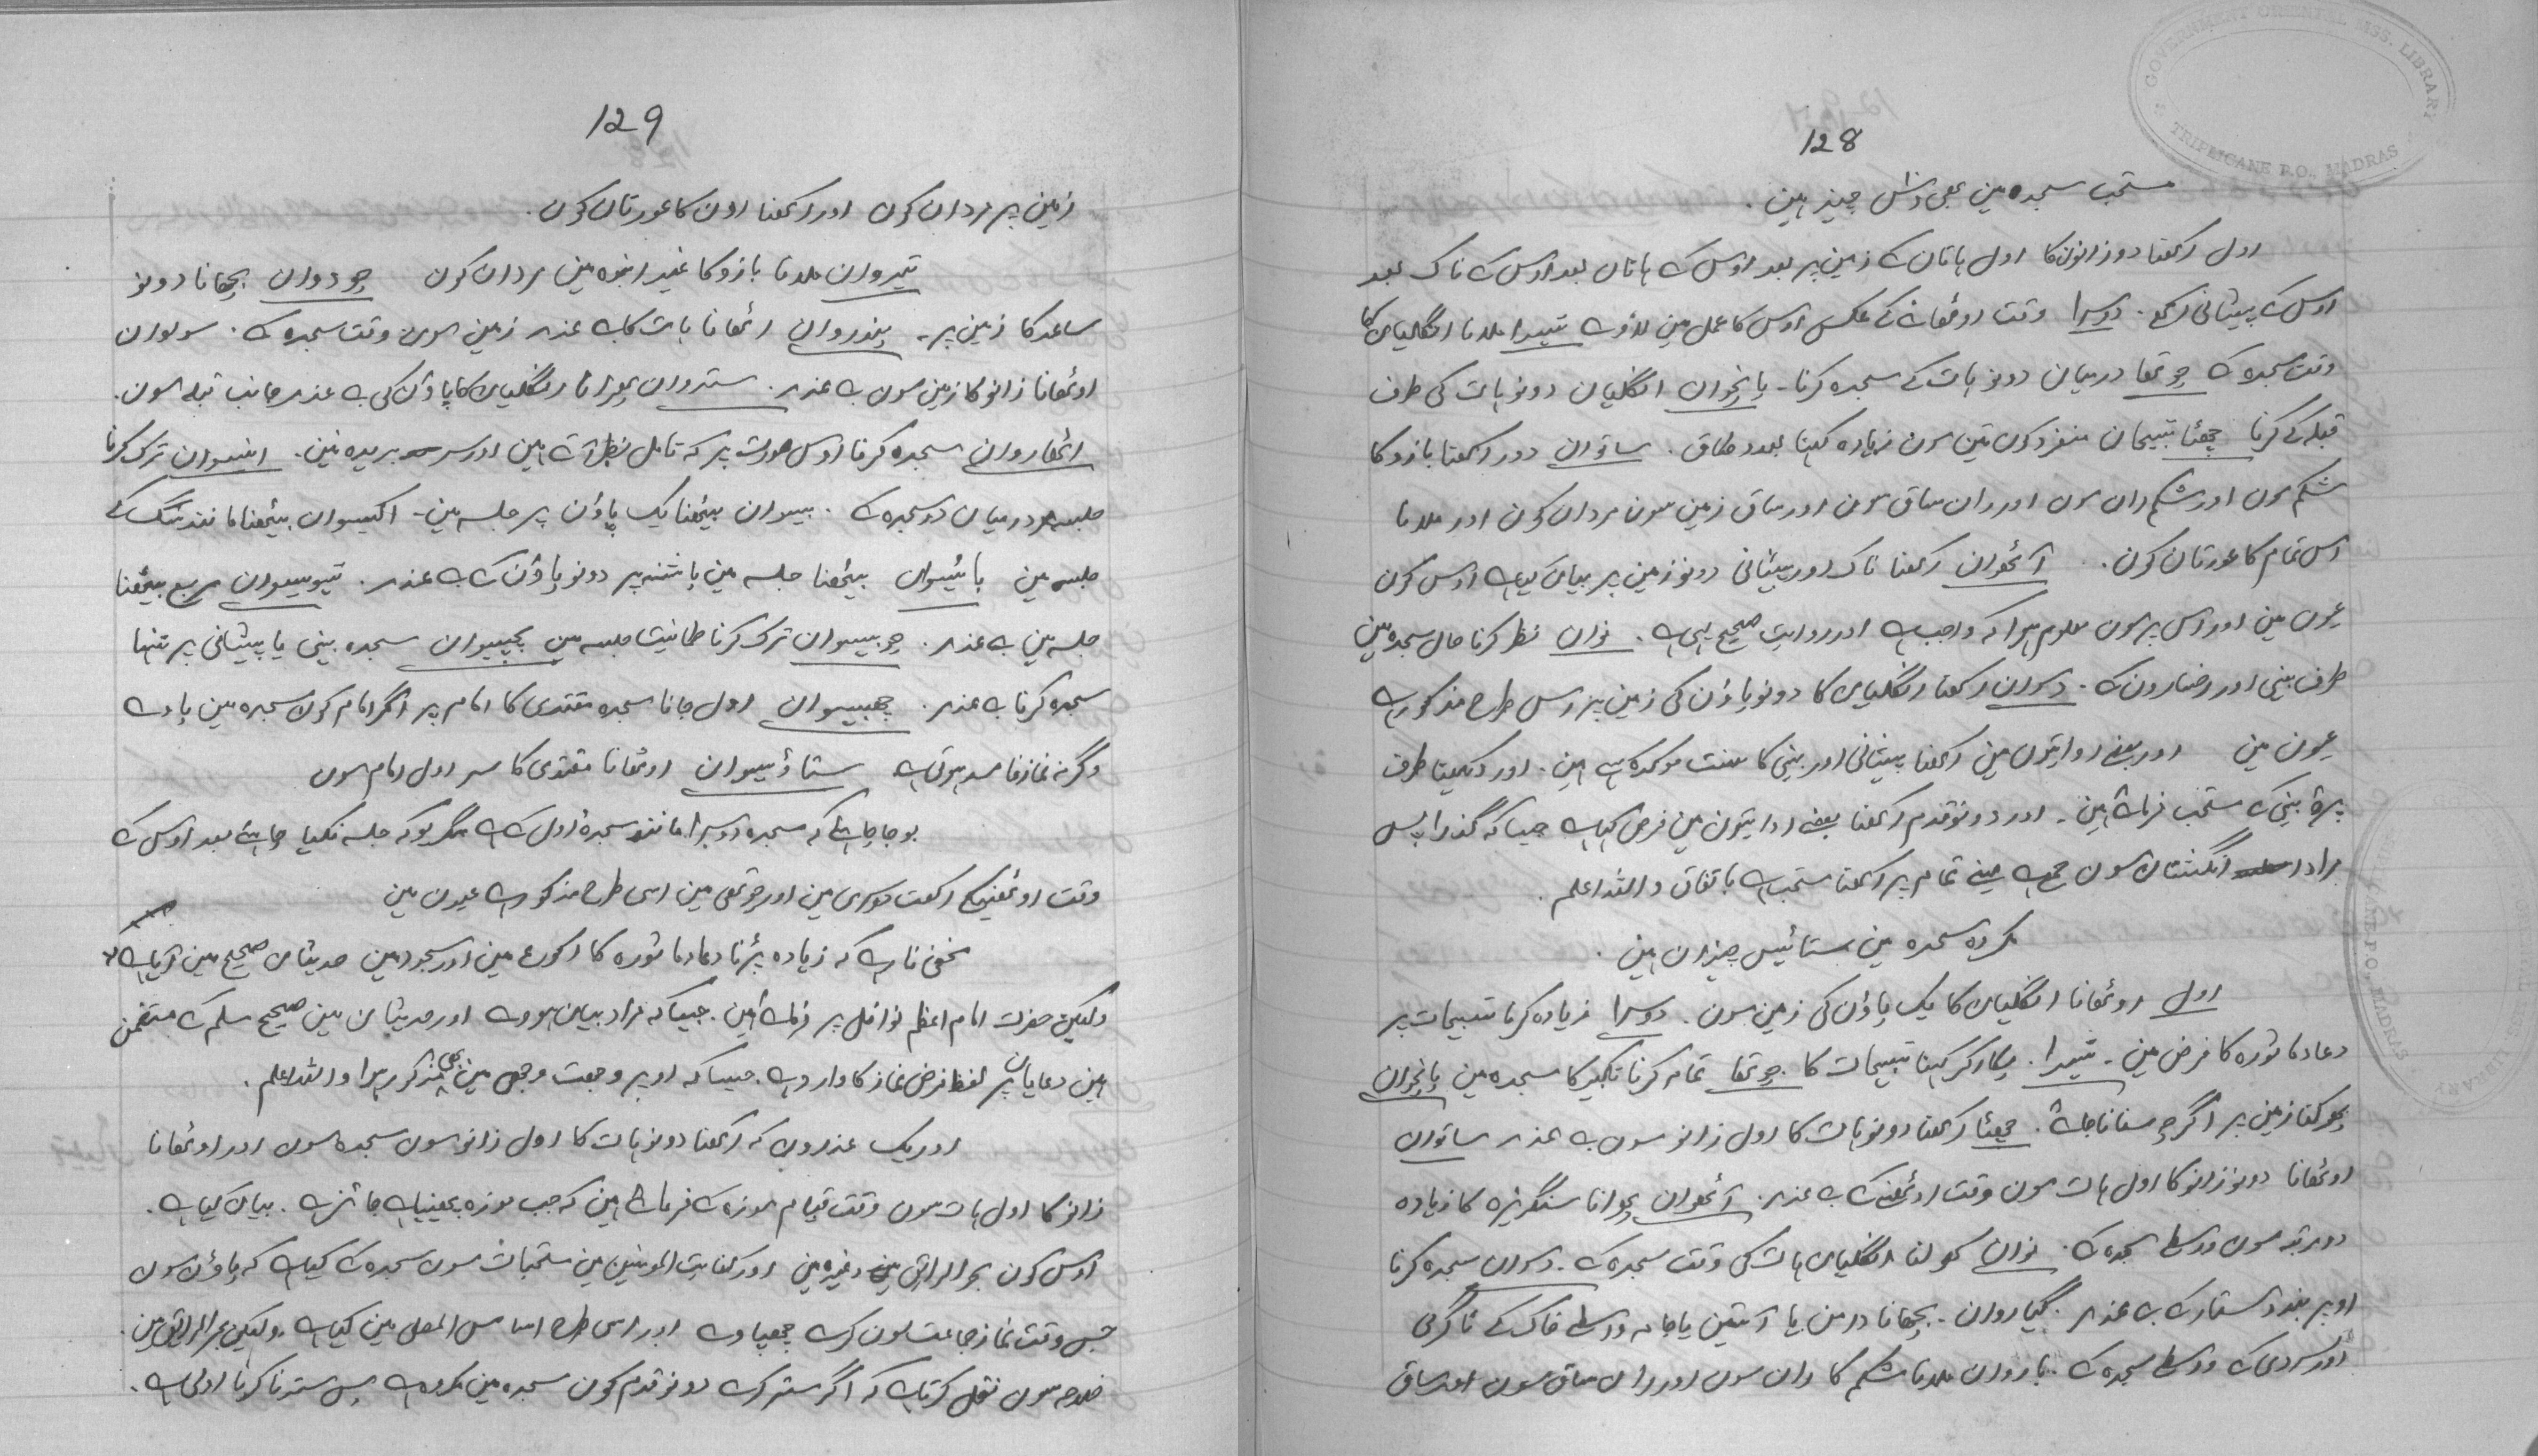 128
مستحب سجدہ مین بھی دش چیز ہین.
اول رکھنا دو زانون کا اول ہاتان کے زمین پر بعد اوس کے ہاتان بعد اوس کے ناک بعد
اوس کے پیشانی رکھے. دوسرا وقت اوٹھانے کے عکس اوس کا عمل مین لاوے تیسرا ملانا انگلیاں کا
وقت سجدہ کے چوتھا درمیان دونو ہات کے سجدہ کرنا۔ پانچواں انگلیان دونو ہات کی طرف
قبلہ کے کرنا چھٹا تسبیحان منفرد کون تین سون زیادہ کہنا بعدد طاق. ساتوان دور رکھنا بازو کا
شکم سون اور شکم ران سون اور ران ساق سون اور ساق زمین سون مردان کون اور ملانا
اس تمام کا عورتان کون. آٹھوان رکھنا ناک اور پیشانی دونو زمین پر بیان کیاہے اوس کون
عیون مین اور اس پر سون معلوم ہوا کہ واجب ہے اور روایت صحیح یہی ہے. نوان نظر کرنا حال سجدہ مین
طرف بینی اور رخسارون کے. دسوان رکھنا انگلیاں کا دونو پاؤن کی زمین پر اس طرح مذکور ہے
عیون مین اور بعضے روایتون مین رکھنا پیشانی اور بینی کا سنت موکدہ ہے ہین. اور دیکھنا طرف
پرہ بینی کے مستحب فرماتے ہین۔ اور دونو قدم رکھنا بعضے روایتون مین فرض کیاہے جیسا کہ گذرا پس
مراد انگشتان سون جمع ہے یعنے تمام پر رکھنا مستحب ہے باتفاق واللہ اعلم.
مکروہ سجدہ مین ستائیس چیزان ہین.
اول اوٹھانا انگلیاں کا یک پاؤن کی زمین سون. دوسرا زیادہ کرنا تسبیحات پر
دعاء ماثورہ کا فرض مین۔ تیسرا. پکار کر کہنا تسبیحات کا. چوتھا تمام کرنا تکبیر کا سجدہ مین پانچوان
پھوکنا زمین پر اگرچہ سنانا جائے. چھٹا رکھنا دونو ہات کا اول زانو سون بے عذر ساتوان
اوٹھانا دونو زانو کا اول ہات سون وقت اوٹھنے کے بے عذر. آٹھوان پھرانا سنگریزہ کا زیادہ
دو مرتبہ سون واسطے سجدہ کے. نوان کھولنا انگلیاں ہات کی وقت سجدہ کے۔ دسوان سجدہ کرنا
اوپر بند دستار کے بے عذر. گیاروان۔ بچھانا دامن یا آستین یا جامہ واسطے خاک کے نا گرمی
اور سردی کے واسطے سجدہ کے. باروان ملانا شکم کا ران سون اور ران ساق سون اور ساق
129
زمین پر مردان کون اور رکھنا اون کا عورتان کون.
تیروان ملانا بازو کا غیر انبوہ مین مردان کون چودوان بچھانا دونو
ساعد کا زمین پر۔ پندروان اٹھانا ہات کا بے عذر زمین سون وقت سجدہ کے. سولوان
اوٹھانا زانو کا زمین سون بے عذر. ستروان پھرانا انگلیاں کا پاؤن کی بے عذر جانب قبلہ سون.
اٹھاروان سجدہ کرنا اوس صورت پر کہ تامل نظر آتے ہین اور سر بریدہ نین. انیسوان ترک کرنا
جلسہ درمیان دو سجدہ کے. بیسوان بیٹھنا یک پاؤن پر جلسہ مین۔ اکیسوان بیٹھنا مانند سگ کے
جلسہ مین بائیسوان بیٹھنا جلسہ مین پاشنہ پر دونو پاؤن کے بے عذر. تیویسوان مربع بیٹھنا
جلسہ مین بے عذر. چوبیسوان ترک کرنا طمانیت جلسہ مین پچیسوان سجدہ بینی یا پیشانی پر تنہا
سجدہ کرنا بے عذر. چھبیسوان اول جانا سجدہ مقتدی کا امام پر اگر امام کون سجدہ مین پاوے
وگرنہ نماز فاسد ہوتی ہے ستاویسوان اوٹھانا مقتدی کا سر اول امام سون
بوجا چاہئے کہ سجدہ دوسرا مانند سجدۂ اول کے ہے مگر یو کہ جلسہ نکیا چاہئے بعد اوس کے
وقت اوٹھنیکے رکعت دوسری مین اور چوتھی مین اسی طرح مذکور ہے عیون مین
مخفی نا رہے کہ زیادہ پڑنا دعاء ماثورہ کا رکوع مین اور سجود مین حدیثاں صحیح مین آیا ہے
ولیکن حضرت امام اعظم نوافل پر فرماتے ہین. جیسا کہ مراد بیان ہووے اور حدیثاں مین صحیح مسلم کے متضمن
ہین دعایاں پر لفظ فرض نماز کا وارد ہے. جیسا کہ اوپر وجہت وجہی مین بھی مذکور ہوا واللہ اعلم.
اور یک عذر وہ کہ رکھنا دونو ہات کا اول زانو سون سجدہ سون اور اوٹھانا
زانو کا اول ہات سون وقت قیام موزہ کے فرماتے ہین کہ جب موزہ پھینیاہے جائز ہے. بیان کیاہے.
اوس کون بحر الرائق مین وغیرہ مین اور کفایت المومنین مین مستحبات سون سجدہ کے کیاہے کہ پاؤن سون
جس وقت نماز جماعت سون کرے چھپاوے اور اس طرح اساس المصلی مین کیاہے. ولیکن بحر الرائق مین.
خلاصہ سون نقل کرتاہے کہ اگر ستر کرے دونو قدم کون سجدہ مین مکروہ ہے پس ستر نا کرنا اولی ہے.